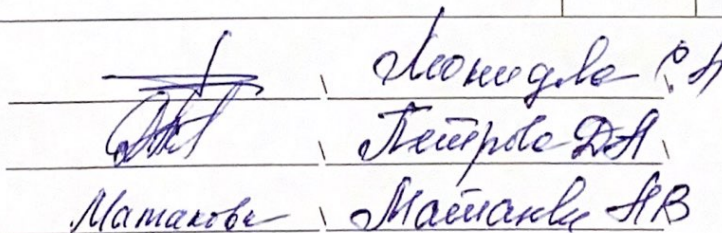 \ Леонидова С А
\ Петрова ДА \
Матакова \ Матакова АВ